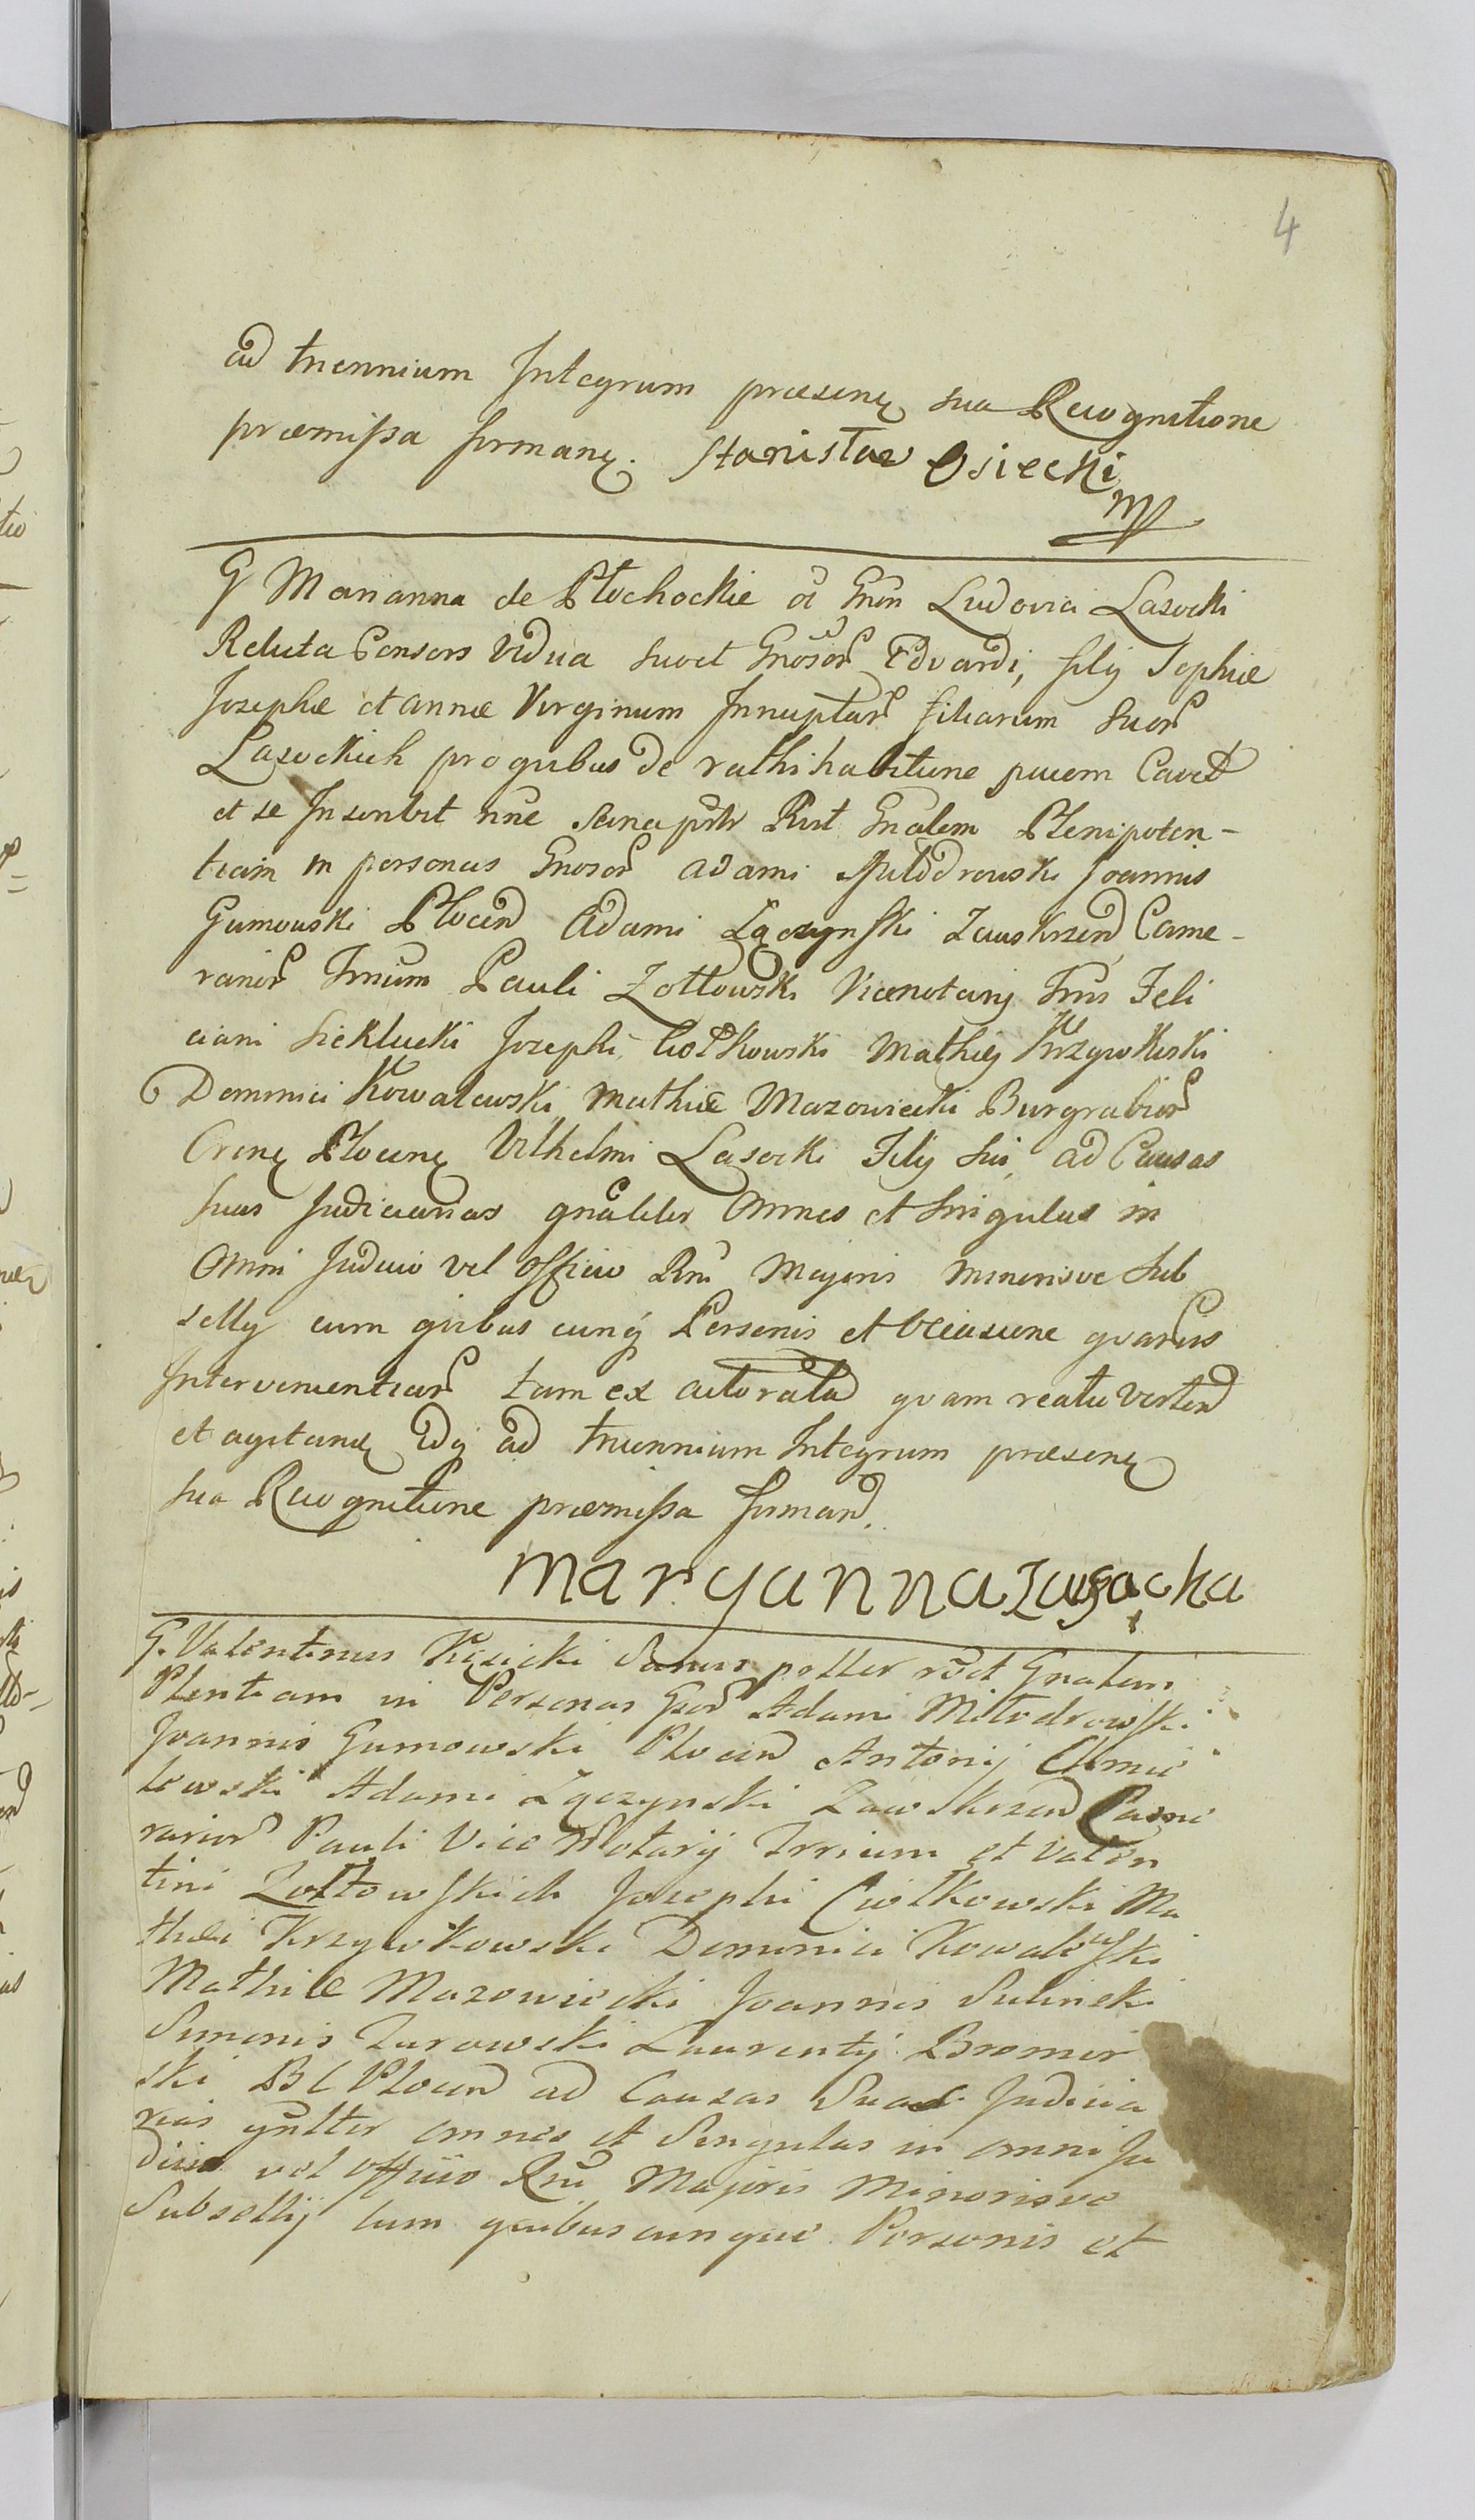 4
ad triennium Integrum præsenꝫ sua Recognitione
præmissa firmanꝫ. Stanisław Osiecki
mp
G Marianna de Płochockie oĩ Gnõn Ludovici Lasocki
Relicta Consors Vidua suo et Gnõsor Edvardi, filij Sophiæ
Josephæ et annæ Virginum Innuptar filiarum suor
Lasockich pro quibus de rathihabitione pacem Cavet
et se Inscribit nñe Sana Rust Gnãlem Plenipoten-
tiam in personas Gnosor Adami Miłodrowski Joannis
Gumouski Płocen Adami Łączynski Zauskrzen Came-
rarior Trrium Pauli Zołtowski Vicenotarij Trris Feli
ciani Siekłucki Josephi Ciołkowski Mathiæ Krzywkoski
Dominici Kowalewski Mathiæ Mazowiecki Burgrabior
Crenꝫ Plocenꝫ Vilhelmi Lasocki Filij sui ad Causas
suas Judiciarias gnãliter Omnes et singulas in
Omni Judicio vel Officio Rni Majoris minorisve Sub
sellij cum quibus cunqꝫ Personis et Occasione quarus
Intervenientiar tam ex actoratu quam reatu verten
et agitanꝫ Idqꝫ ad triennium Integrum præsenꝫ
sua Recognitione præmissa firman.
Maryanna Lasocka
G. Valentinus Kęsicki Sanus palter rect Gnalem
Plentiam in Personas Gsor Adami Miłodrowski
Joannis Gumowski Plocen Antonij Chmie
lewski Adami Łączynski Zawskrzen Came
rarior Pauli Vice Notarij Trrium et Valen
tini Zołtowskich Josephi Ciołkowski Ma
thæi Krzywkowski Dominici Kowalewski
Mathiæ Mazowiecki Joannis Suliński
Simonis Zurowski Laurentij Bromir
ski BC Plocen ad Causas Suas Judicia
rias gnlter omnes et Singulas in omni Ju
dicio vel Officio Rni Majoris Minorisve
Subsellij cum quibus cunque Personis et